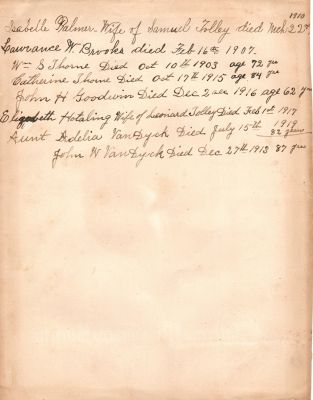 1910
Isabelle Palmer Wife of Samuel Tolley died Mch 22nd,
Lawrance W. Brooks died Feb 16th 1907.
Wm S Thorne Died Oct 10th 1903 age 72 yrs
Catherine Thorne Died Oct 17th 1915 age 84 yrs
John H Goodwin Died Dec 2 1916 age 62 yrs
Elizabeth Hotaling Wife of Leonard Tolley Died Feb 1st 1917
Aunt Adelia VanDyck Died July 15th 1919
82 years
John W VanDyck Died Dec 27th 1913 87 yrs